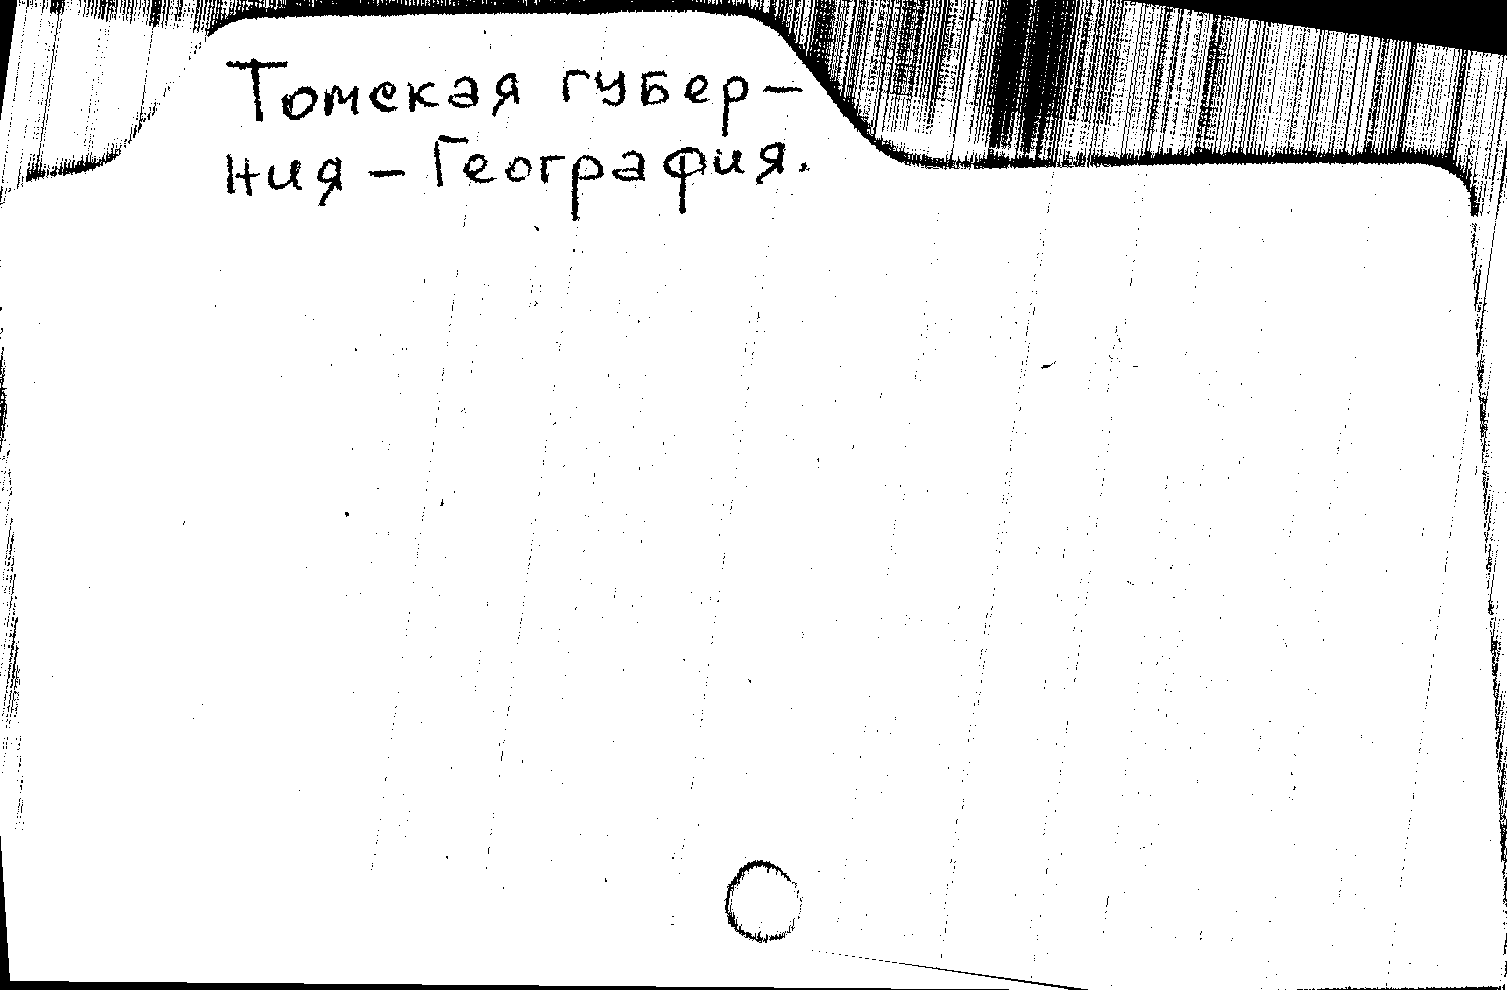 Томская губер-
ния - География.